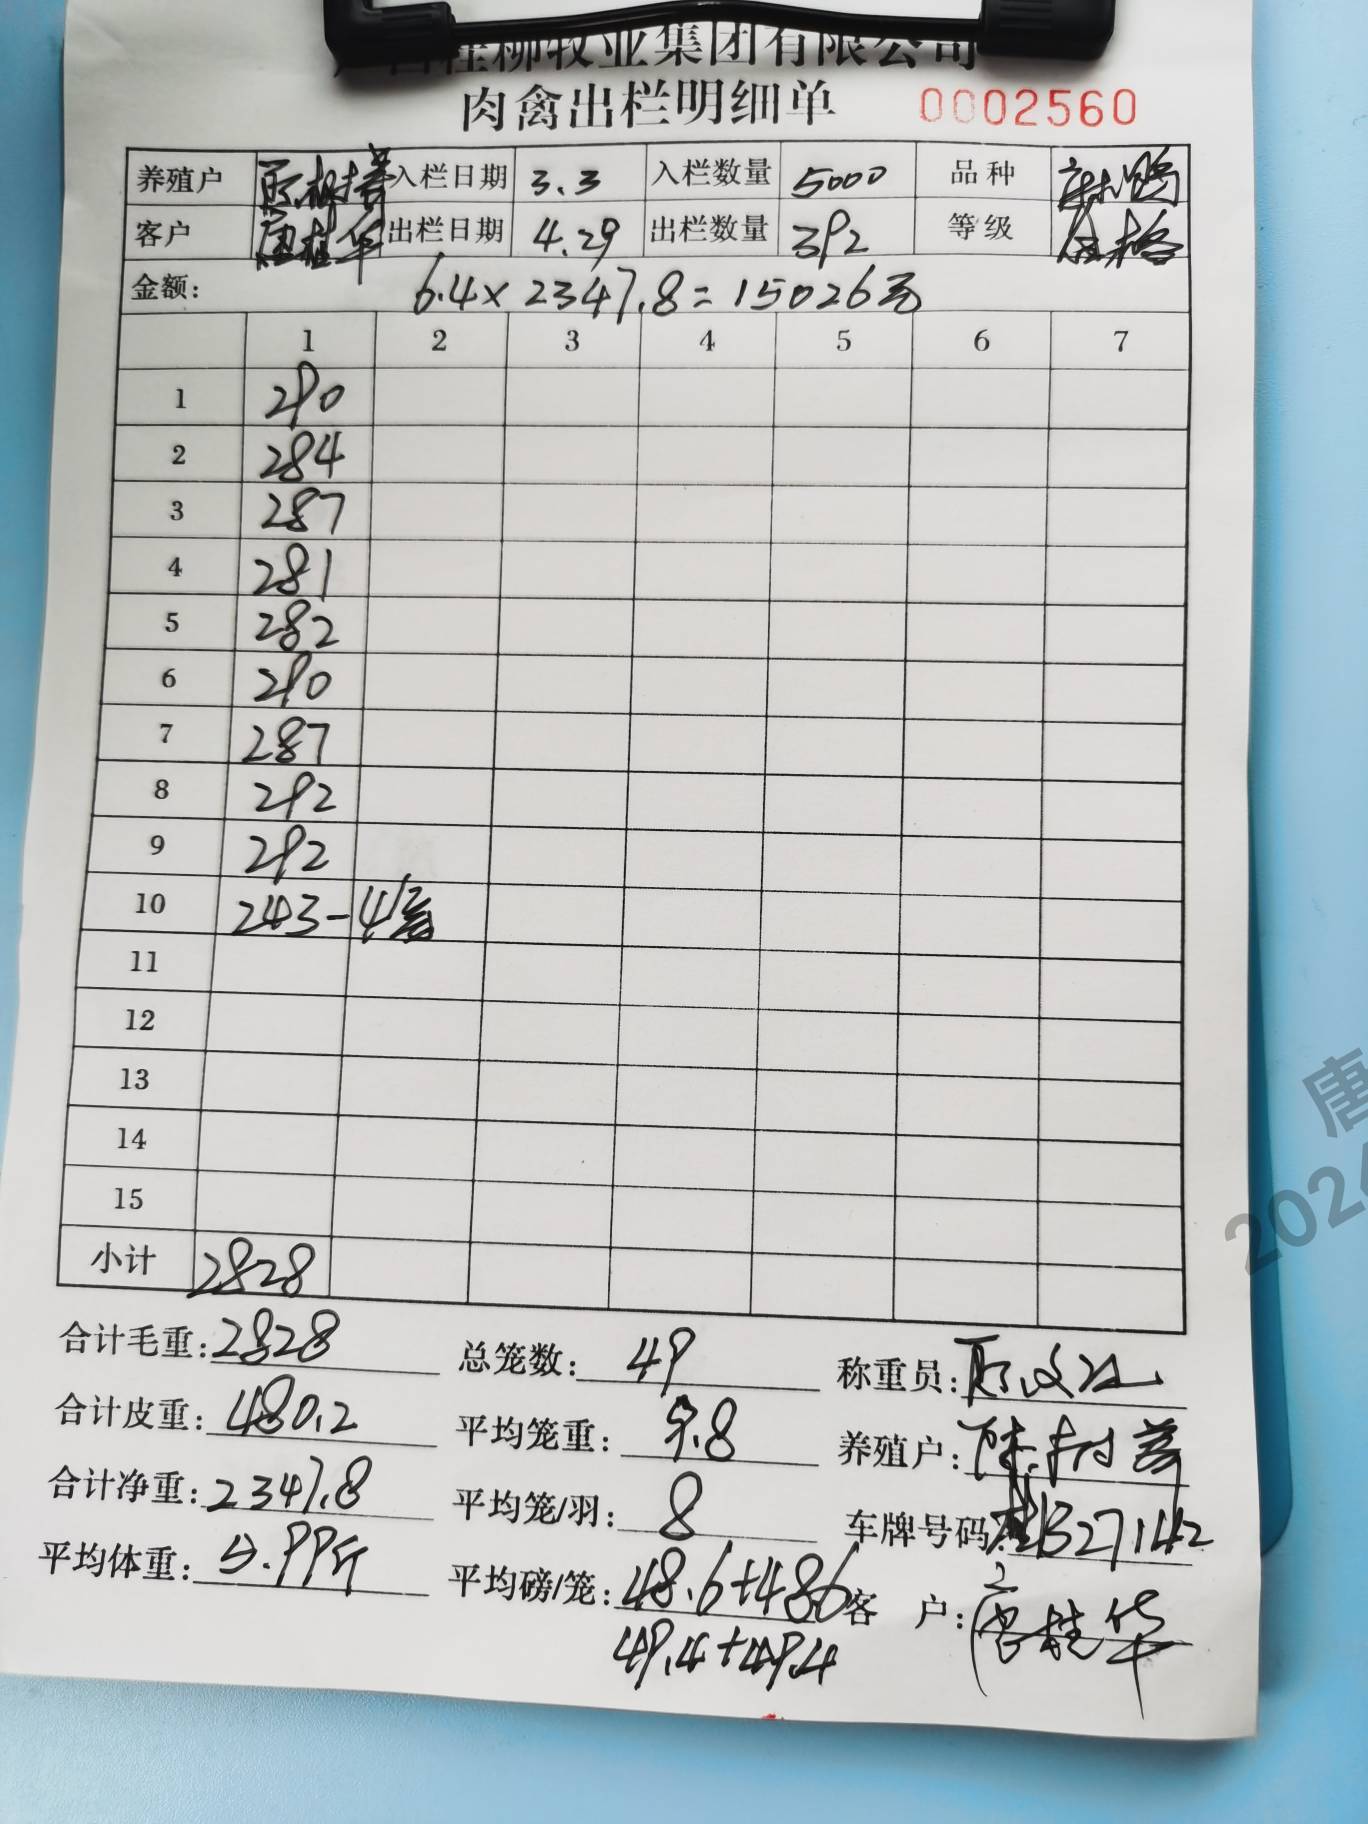 桂柳牧业集团有限公司
肉禽出栏明细单 0002560
养殖户 陈树普 入栏日期 3.3 入栏数量 5000 品种 麻鸭
客户 唐桂华 出栏日期 4.29 出栏数量 392 等级 合格
金额: 6.4×2347.8=15026元
1 2 3 4 5 6 7
1 290
2 284
3 287
4 281
5 282
6 290
7 287
8 292
9 292
10 243-4笼
11
12
13
14
15
小计 2828
合计毛重: 2828 总笼数: 49 称重员:
合计皮重: 480.2 平均笼重: 9.8 养殖户: 陈树普
合计净重: 2347.8 平均笼/羽: 8 车牌号码: 桂B27142
平均体重: 5.99斤 平均磅/笼: 48.6+48.6 客户: 唐桂华
49.4+49.4
唐
202